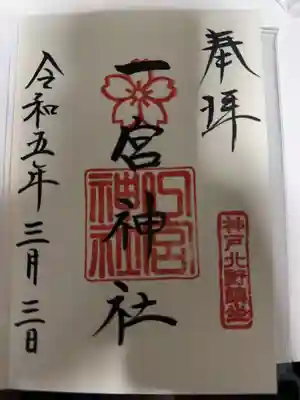 奉拝
神戸北野鎮座
一宮神社
一宮神社
令和五年三月三日